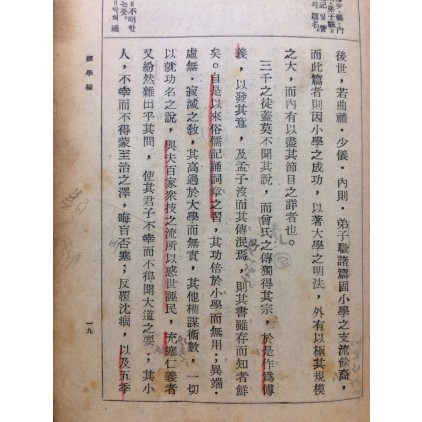 後世，若曲禮·少儀·內則·弟子職諸篇固小學之支流餘裔，
而此篇者則因小學之成功，以著大學之明法，外有以極其規模
之大，而內有以盡其節目之詳者也。
三千之徒蓋莫不聞其說，而曾氏之傳獨得其宗，於是作爲傳
義，以發其意，及孟子沒而其傳泯焉，則其書雖存而知者鮮
矣。自是以來俗儒記誦詞章之習，其功倍於小學而無用；異端·
虛無·寂滅之敎，其高過於大學而無實，其他權謀術數，一切
以就功名之說，與夫百家衆技之流所以惑世誣民，充塞仁義者
又紛然雜出乎其間，使其君子不幸而不得聞大道之要；其小
人，不幸而不得蒙至治之澤，晦盲否塞；反覆沈痼，以及五季
經學編
一九